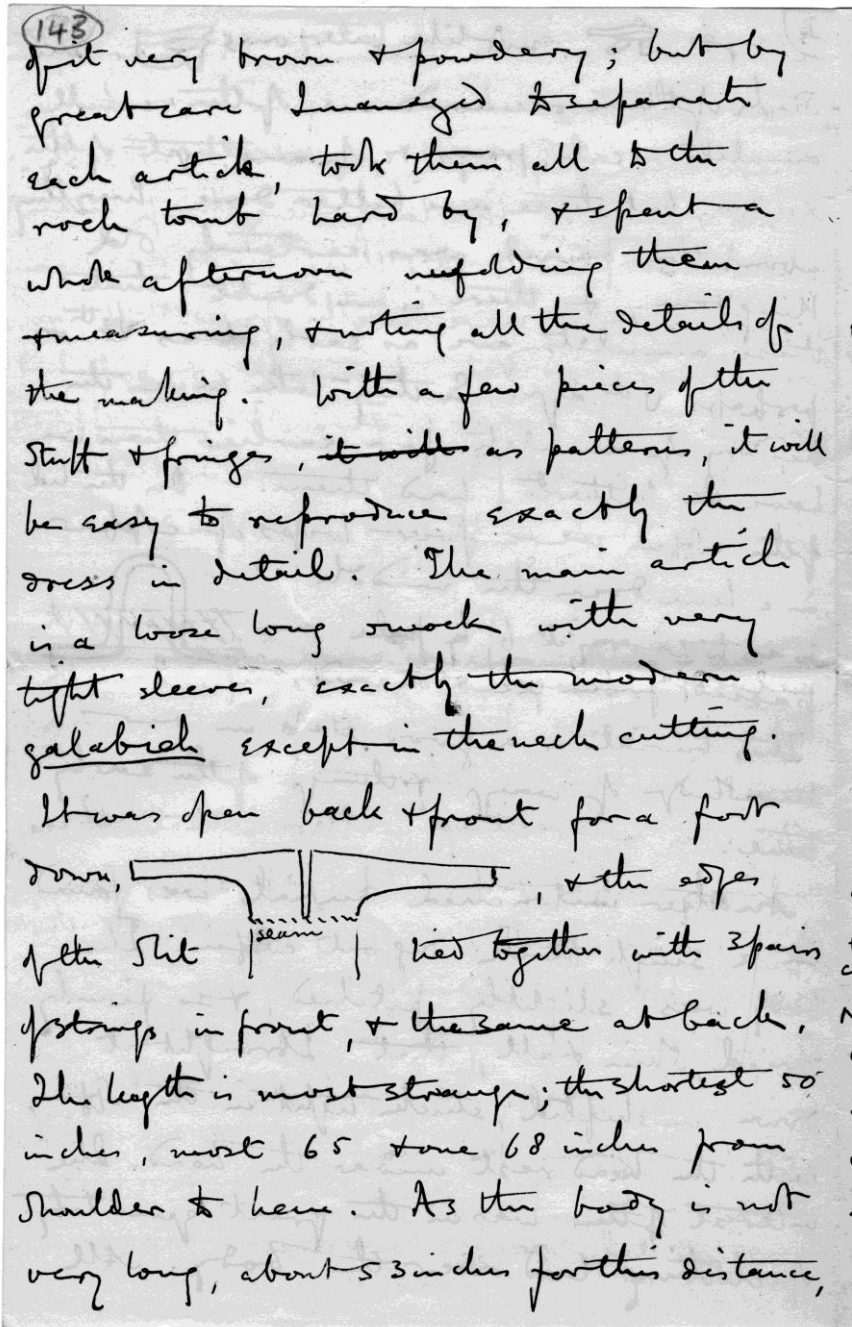 143
of it very brown & powdery; but by
great care I managed to separate
each article, took them all to the
rock tomb hard by, & spent a
whole afternoon unfolding them
& measuring, & noting all the details of
the making. With a few pieces of the
stuff & fringes, it will as patterns, it will
be easy to reproduce exactly the
dress in detail. The main article
is a loose long smock with very
tight sleeves, exactly the modern
galabieh except in the neck cutting.
It was open back & front for a foot
down, , & the edges
seam
of the slit tied together with 3 pairs
of strings in front, & the same at back.
The length is most strange; the shortest 50
inches, most 65 & one 68 inches from
shoulder to hem. As the body is not
very long, about 53 inches for this distance,